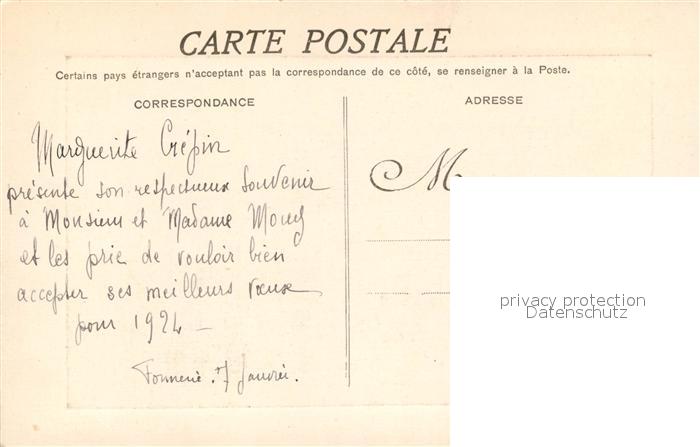 CARTE POSTALE
Certains pays étrangers n'acceptant pas la correspondance de ce côté, se renseigner à la Poste.
CORRESPONDANCE
ADRESSE
Marguerite Crépin
présente son respectueux souvenir
à Monsieur et Madame
et les prie de vouloir bien
accepter ses meilleurs vœux
pour 1924 —
7 Janvier.
M
privacy protection
Datenschutz